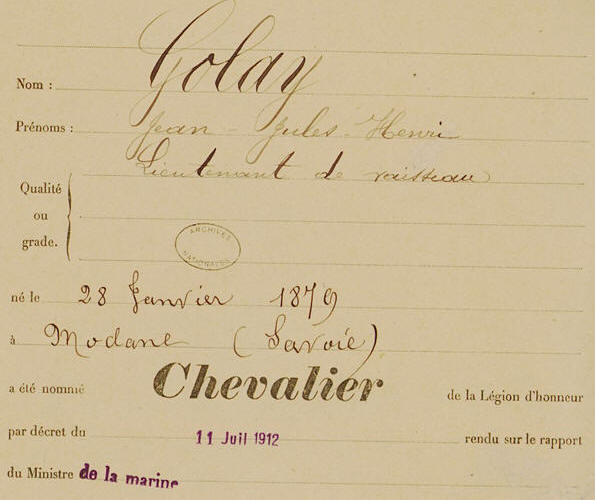 Nom : Golay
Prénoms : Jean-Jules-Henri
Lieutenant de vaisseau
Qualité
ou
grade.
ARCHIVES
NATIONALES
né le 28 Janvier 1879
à Modane (Savoie)
a été nommé Chevalier de la Légion d'honneur
par décret du 11 Juil 1912 rendu sur le rapport
du Ministre de la marine